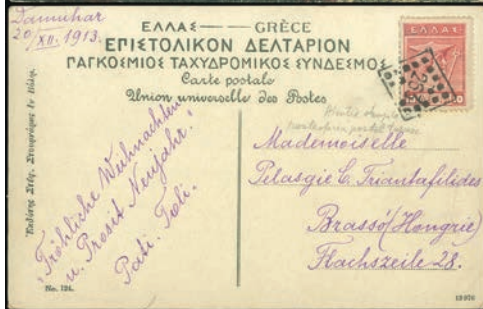 Damuhar
20/XII. 1913.
ΕΛΛΑΣ — GRÈCE
ΕΠΙΣΤΟΛΙΚΟΝ ΔΕΛΤΑΡΙΟΝ
ΠΑΓΚΟΣΜΙΟΣ ΤΑΧΥΔΡΟΜΙΚΟΣ ΣΥΝΔΕΣΜΟΣ
Carte postale
Union universelle des Postes
ΕΛΛΑΣ
Fröhliche Weihnachten
u. Prosit Neujahr!
Mademoiselle
Pelasgie C. Triantafilides
Brassó (Hongrie)
Flachszeile 28.
No. 124.